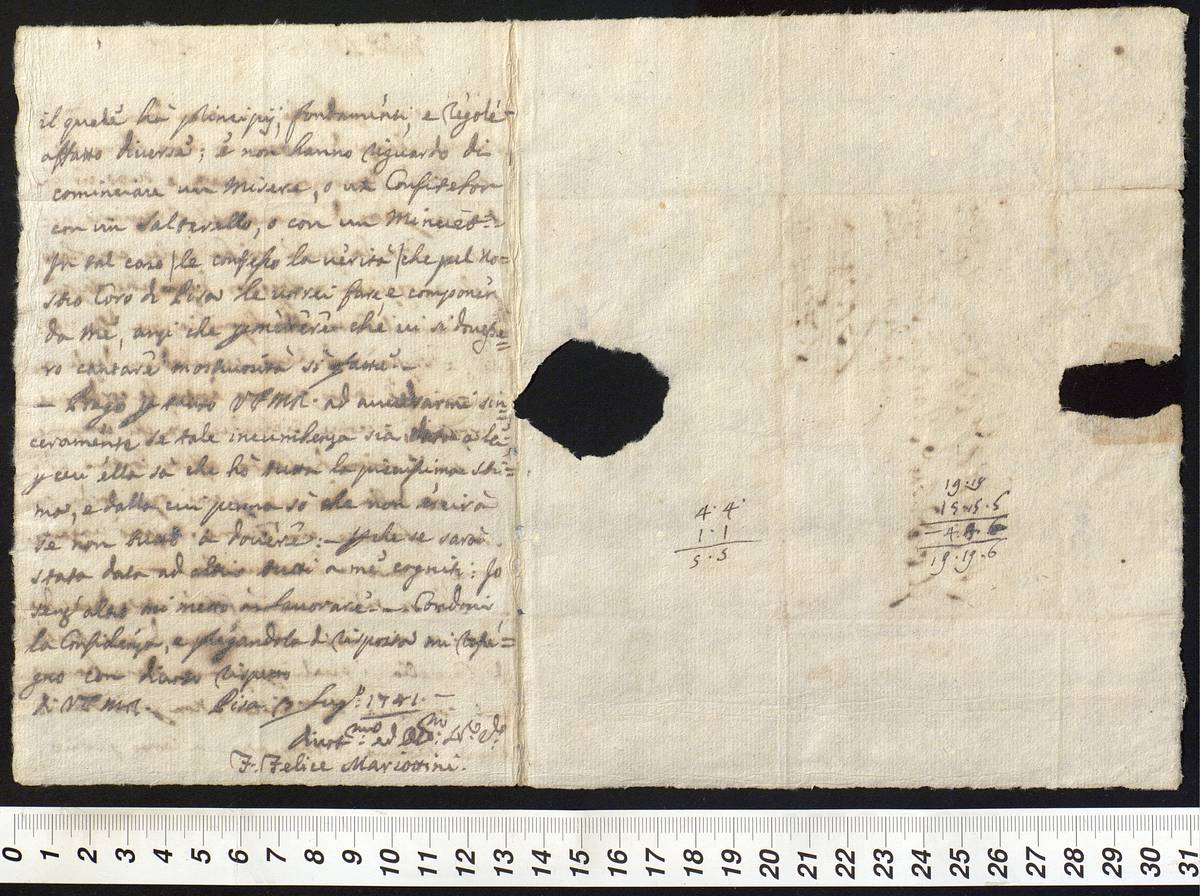 il quale hà principij, fondamenti, e regole
affatto diverse; e non hanno riguardo di
cominciare un Misere, o un Confitebor
con un Salterello, o con un Minuet.
In tal caso |le confesso la verità| che pel No=
stro Coro di Pisa le vorrei fare, e componer
da me, anzi che permettere che vi si doveße=
ro cantare mostruosità sì fatte. –
– Prego p tanto V P M R. ad avvisarmi sin=
ceramente se tale incumbenza sia data à lei,
p cui ella sà che hò tutta la pienissima sti=
ma, e dalla cui penna sò che non escirà
se non a dovere: – p che se sarà
stata data ad altri tutti a me cogniti: Io
senz'altro mi metto à lavorare. – Condoni
la Confidenza, e pregandola di risposta mi raße=
gno con divoto rispetto
di V P M R. – Pisa 3. Lug.º 1741. –
Divot.mo ed Ob.mo Se.º
F. Felice Mariottini.
4. 4
1. 1
5. 5
19. 19
15. 15. 5
– 4. 4. 6
19. 19. 6
0 1 2 3 4 5 6 7 8 9 10 11 12 13 14 15 16 17 18 19 20 21 22 23 24 25 26 27 28 29 30 31